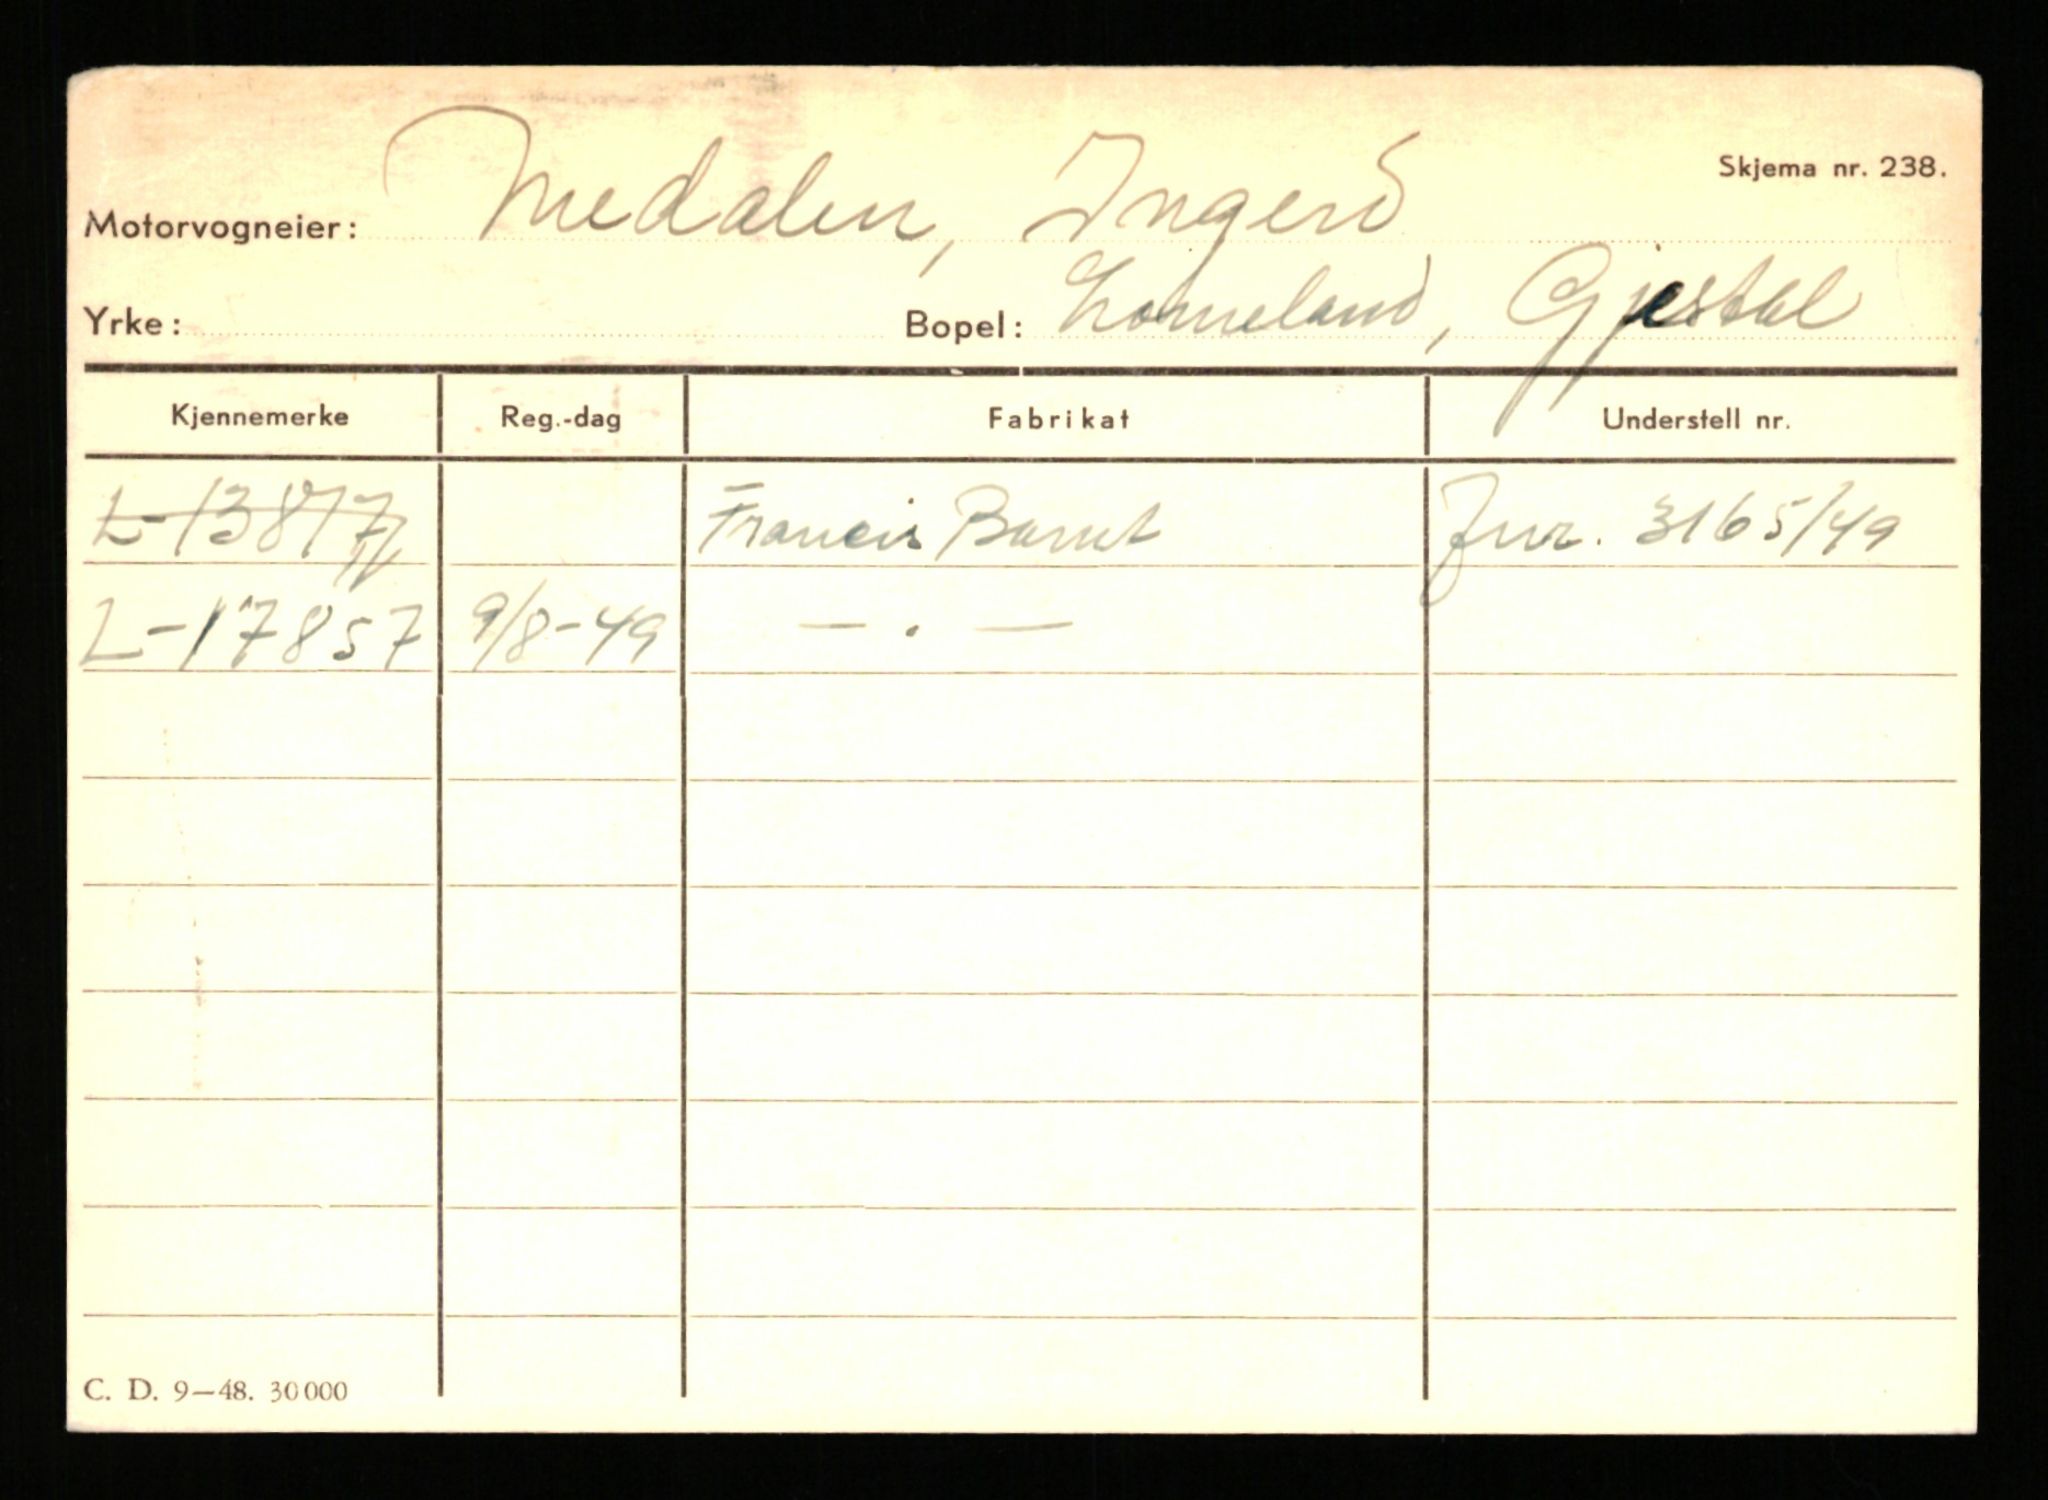 Skjema nr. 238.
Motorvogneier: Nedalen, Ingerd
Yrke: Bopel: Gjestal
Kjennemerke Reg.-dag Fabrikat Understell nr.
L-13877 Francis Barnet Jnr. 3165/49
L-17857 9/8-49 — . —
C. D. 9—48. 30000